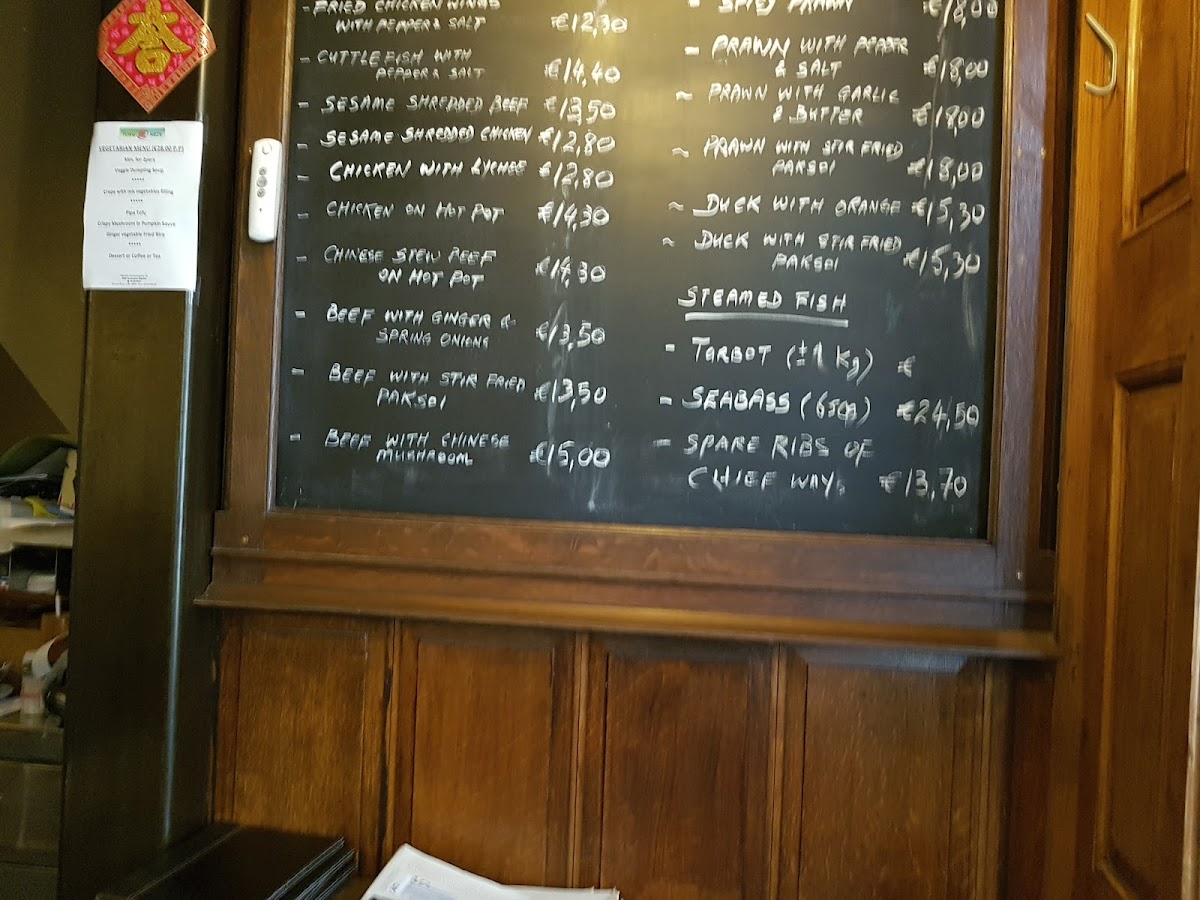 - FRIED CHICKEN WINGS
WITH PEPPER & SALT €12,30
- CUTTLEFISH WITH
PEPPER & SALT €14,40
- SESAME SHREDDED BEEF €13,50
- SESAME SHREDDED CHICKEN €12,80
- CHICKEN WITH LYCHEE €12,80
- CHICKEN ON HOT POT €14,30
- CHINESE STEW BEEF
ON HOT POT €14,30
- BEEF WITH GINGER &
SPRING ONIONS €13,50
- BEEF WITH STIR FRIED
PAKSOI €13,50
- BEEF WITH CHINESE
MUSHROOM €15,00
PRAWN €18,00
- PRAWN WITH PEPPER
& SALT €18,00
~ PRAWN WITH GARLIC
& BUTTER €18,00
~ PRAWN WITH STIR FRIED
PAKSOI €18,00
~ DUCK WITH ORANGE €15,30
~ DUCK WITH STIR FRIED
PAKSOI €15,30
STEAMED FISH
- TORBOT (±1 Kg) €
- SEABASS (650g) €24,50
- SPARE RIBS OF
CHIEF WAY. €13,70
VEGETARIAN MENU (€28,00 P.P)
Veggie Dumpling Soup
*****
Crepe with mix vegetables filling
*****
Pipa Tofu
Crispy Mushroom in Pumpkin Sauce
Ginger vegetable Fried Rice
*****
Dessert or Coffee or Tea